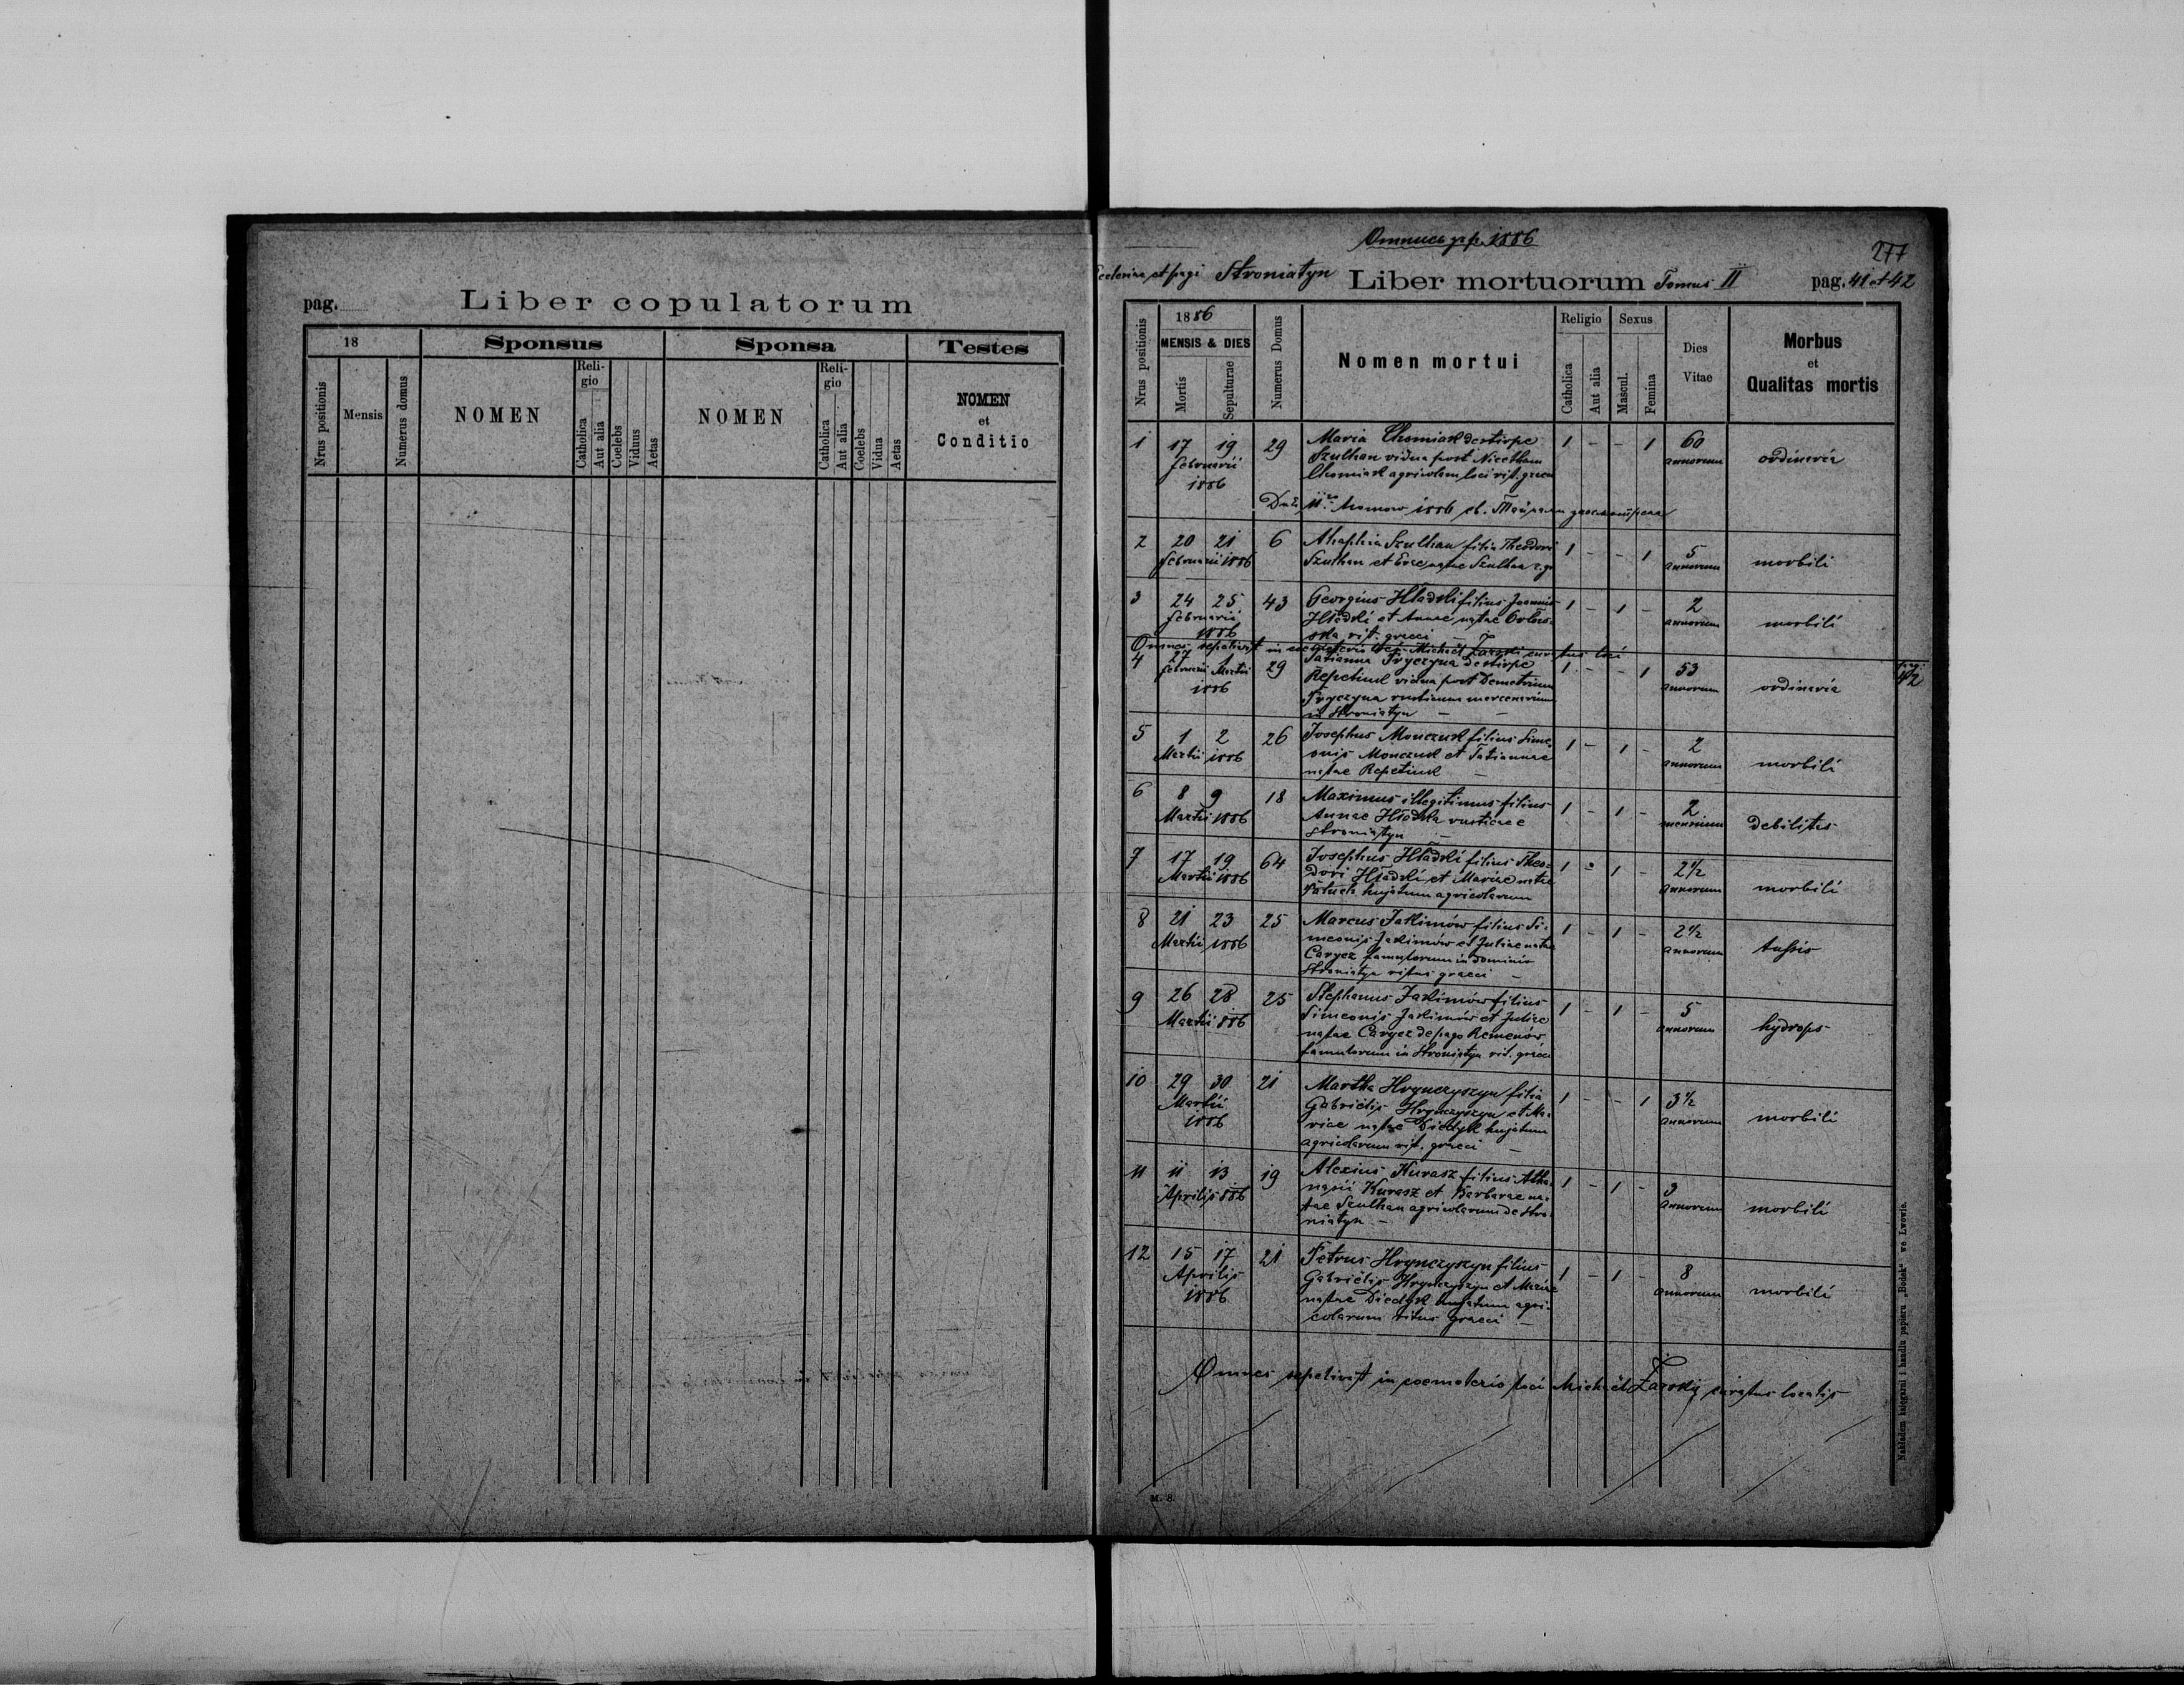 pag.
Liber copulatorum
18
Sponsus
Sponsa
Testes
Nrus positionis
Mensis
Numerus domus
NOMEN
Reli-
gio
Catholica
Aut alia
Coelebs
Viduus
Aetas
NOMEN
Reli-
gio
Catholica
Aut alia
Coelebs
Vidua
Aetas
NOMEN
et
Conditio
1886
277
Ecclesiae et pagi Stroniatyn Liber mortuorum Tomus II pag. 41 et 42
Nrus positionis
1886
MENSIS & DIES
Mortis
Sepulturae
Numerus Domus
Nomen mortui
Religio
Catholica
Aut alia
Sexus
Mascul.
Femina
Dies
Vitae
Morbus
et
Qualitas mortis
1 17 19 29 Maria Chomiak de stirpe 1 - - 1 60 ordinaria
Februarii Szulhan vidua post Nicetham annorum
1886 Chomiak agricolam loci rit. graeci
1886
2 20 21 6 Ahaphia Szulhan filia Theodori 1 - - 1 5 morbili
Februarii 1886 Szulhan et Evae natae Szulhan r. gr annorum
3 24 25 43 Georgius Hładki filius Joannis 1 - 1 - 2 morbili
Februarii Hładki et Annae natae annorum
1886 rit. graeci
Omnes sepelivit in coemeterio loci Michaël Żarski curatus loci
4 27 1 29 Tatianna Tryczyna de stirpe 1 - - 1 53 ordinaria pag. 42
Februarii Martii Repetiuk vidua post Demetrium annorum
1886 Tryczyna rusticum mercenarium
in Stroniatyn -
5 1 2 26 Josephus Monczuk filius Sime- 1 - 1 - 2 morbili
Martii 1886 onis Monczuk et Tatiannae annorum
natae Repetiuk -
6 8 9 18 Maximus illegitimus filius 1 - 1 - 2 debilitas
Martii 1886 Annae Hładka rusticae e mensium
Stroniatyn -
7 17 19 64 Josephus Hładki filius Theo- 1 - 1 - 2½ morbili
Martii 1886 dori Hładki et Mariae natae annorum
hujatum agricolarum
8 21 23 25 Marcus Jakimów filius Si- 1 - 1 - 2½ tussis
Martii 1886 meonis Jakimów et Juliae natae annorum
Carycz famulorum in dominio
Stroniatyn ritus graeci -
9 26 28 25 Stephanus Jakimów filius 1 - 1 - 5 hydrops
Martii 886 Simeonis Jakimów et Juliae annorum
natae Carycz de pago Remenów
famulorum in Stroniatyn rit. graeci
10 29 30 21 Martha Hrynczyszyn filia 1 - - 1 3½ morbili
Martii Gabriëlis Hrynczyszyn et Ma- annorum
1886 riae natae Diedyk hujatum
agricolarum rit. graeci -
11 11 13 19 Alexius Kurasz filius Atha- 1 - 1 - 3 morbili
Aprilis 886 nasii Kurasz et Barbarae na- annorum
tae Szulhan agricolarum de Stro-
niatyn -
12 15 17 21 Petrus Hrynczyszyn filius 1 - 1 - 8 morbili
Aprilis Gabriëlis Hrynczyszyn et Mariae annorum
1886 natae Diedyk hujatum agri-
colarum ritus graeci -
Omnes sepelivit in coemeterio loci Michaël Żarski curatus localis
M. 8.
Nakładem księgarni i handlu papieru „Bodek“ we Lwowie.